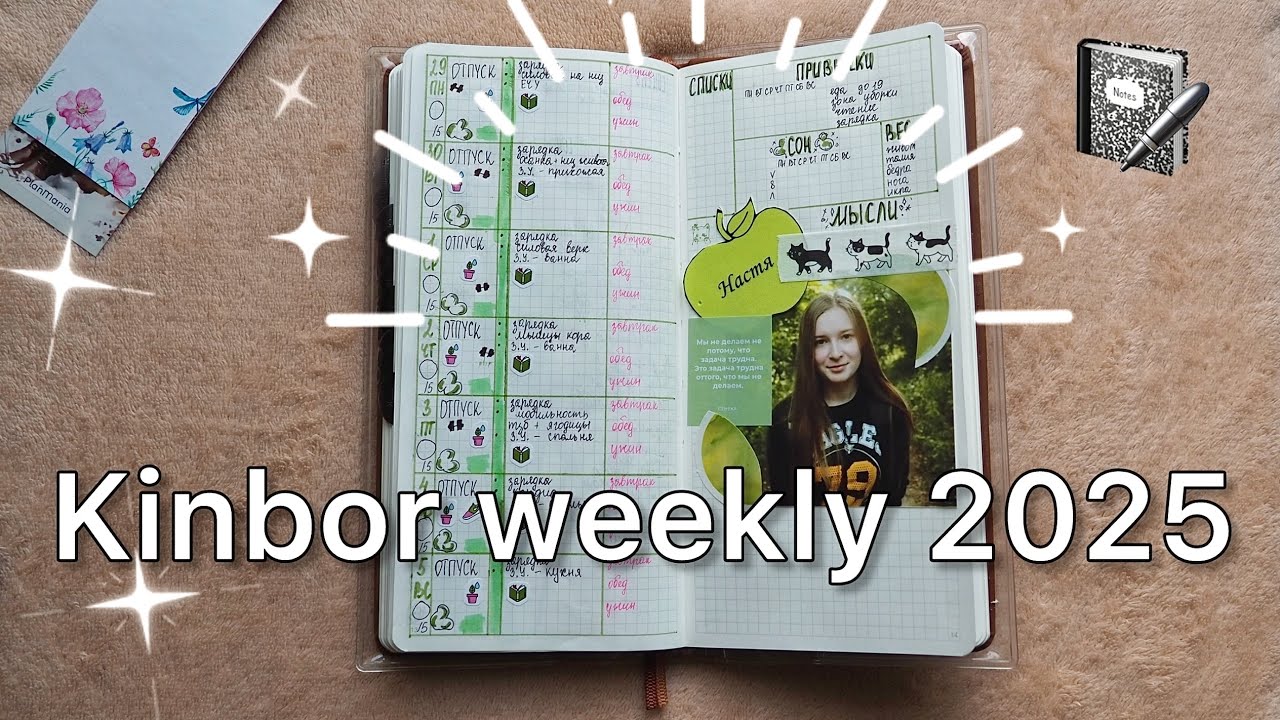 PlanMania
29
ПН
ОТПУСК
зарядка
завтрак
обед
ужин
15
30
ВТ
ОТПУСК
зарядка
З.У. - прихожая
завтрак
обед
ужин
15
1
СР
ОТПУСК
зарядка
силовая верх
З.У. - ванна
завтрак
обед
ужин
15
2
ЧТ
ОТПУСК
зарядка
мышцы кора
З.У. - ванна
завтрак
обед
ужин
15
3
ПТ
ОТПУСК
зарядка
мобильность
тзб + ягодицы
З.У. - спальня
завтрак
обед
ужин
15
4
ОТПУСК
зарядка
завтрак
15
5
ВС
ОТПУСК
зарядка
З.У. - кухня
завтрак
обед
ужин
15
СПИСКИ
ПРИВЫЧКИ
ПН ВТ СР ЧТ ПТ СБ ВС
еда до 19
зона уборки
чтение
зарядка
СОН
ПН ВТ СР ЧТ ПТ СБ ВС
ВЕС
талия
бедра
нога
икра
МЫСЛИ
Настя
Мы не делаем не
потому, что
задача трудна.
Это задача трудна
оттого, что мы не
делаем.
СЕНЕКА
79
Notes
Kinbor weekly 2025